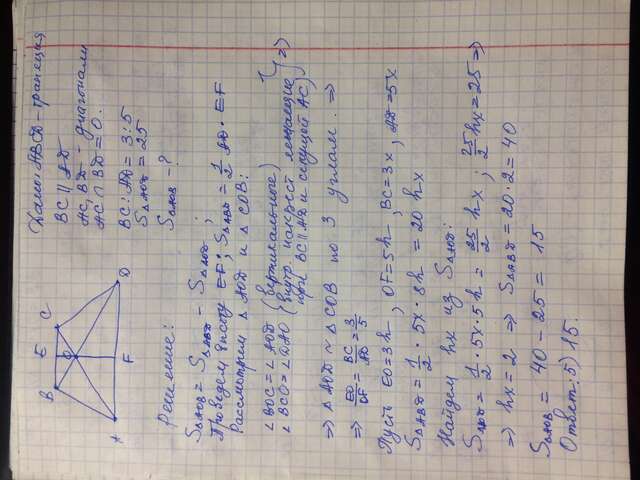 Дано: ABCD - трапеция
BC || AD
AC, BD - диагонали
AC ∩ BD = O.
BC : AD = 3:5
S△AOD = 25
S△AOB - ?
B E C
O
A F D
Решение:
S△AOB = S△ABD - S△AOD ;
Проведем высоту EF; S△ABD = 1/2 AD · EF
Рассмотрим △ AOD и △ COB:
∠BOC = ∠AOD (вертикальные)
∠BCO = ∠DAO (внутр. накрест лежащие
при BC || AD и секущей AC) } =>
=> △ AOD ~ △ COB по 3 углам. =>
=> EO/OF = BC/AD = 3/5
Пусть EO = 3h, OF = 5h, BC = 3x, AD = 5x
S△ABD = 1/2 · 5x · 8h = 20 hx
Найдем hx из S△AOD:
S△AOD = 1/2 · 5x · 5h = 25/2 hx ; 25/2 hx = 25 =>
=> hx = 2 => S△ABD = 20 · 2 = 40
S△AOB = 40 - 25 = 15
Ответ: 5) 15.